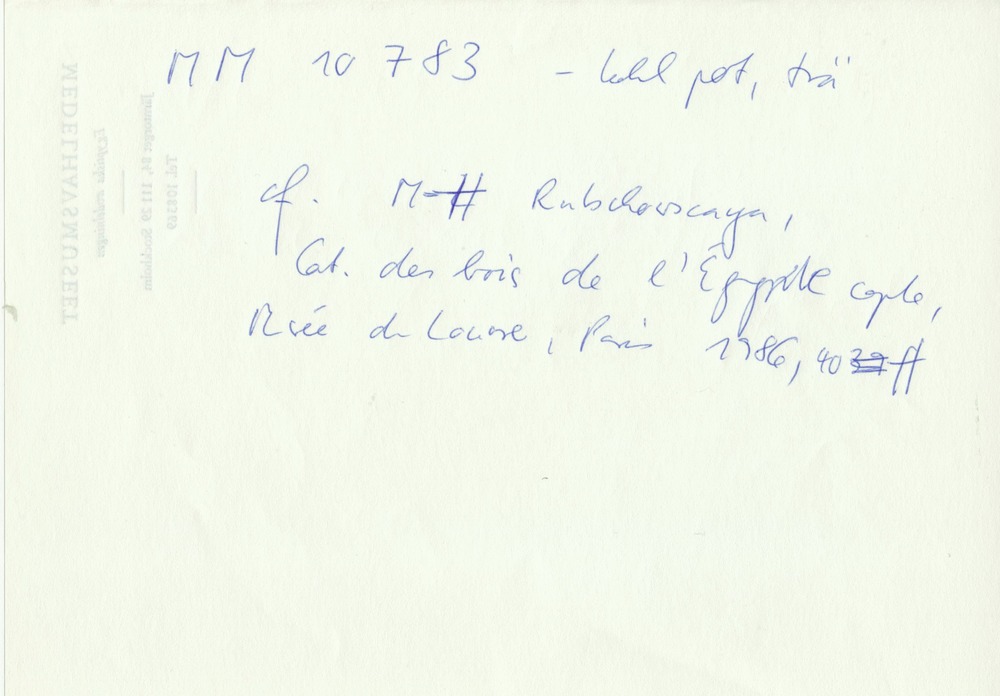 MM 10 783 - kohl pot, trä
cf. M-H Rutschowscaya,
Cat. des bois de l'Égypte copte,
Musée du Louvre, Paris 1986, 40 ff
MEDELHAVSMUSEET
Egyptiska avdelningen
Järntorget 84, 111 29 Stockholm
Tel. 108369